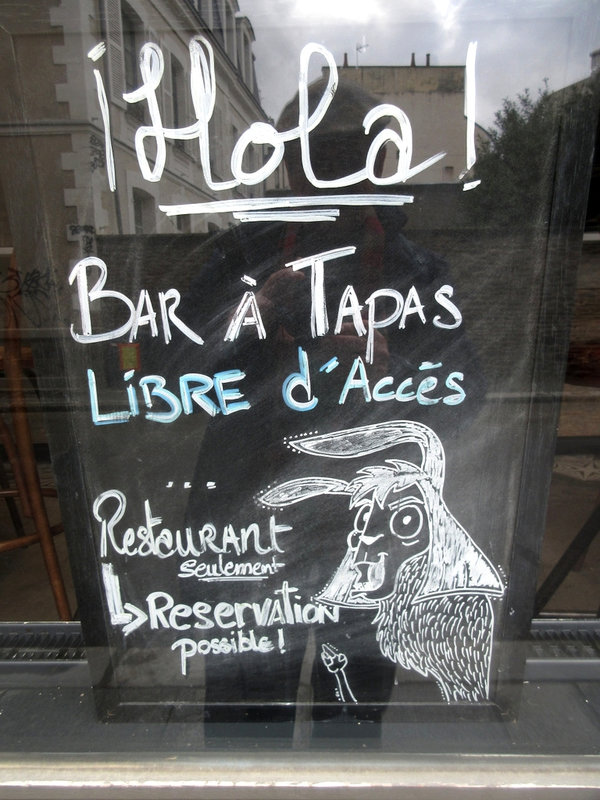 ¡Hola!
BAR À TAPAS
LIBRE d'Accès
...
RestauRANt
seulement
↳ Reservation
possible!